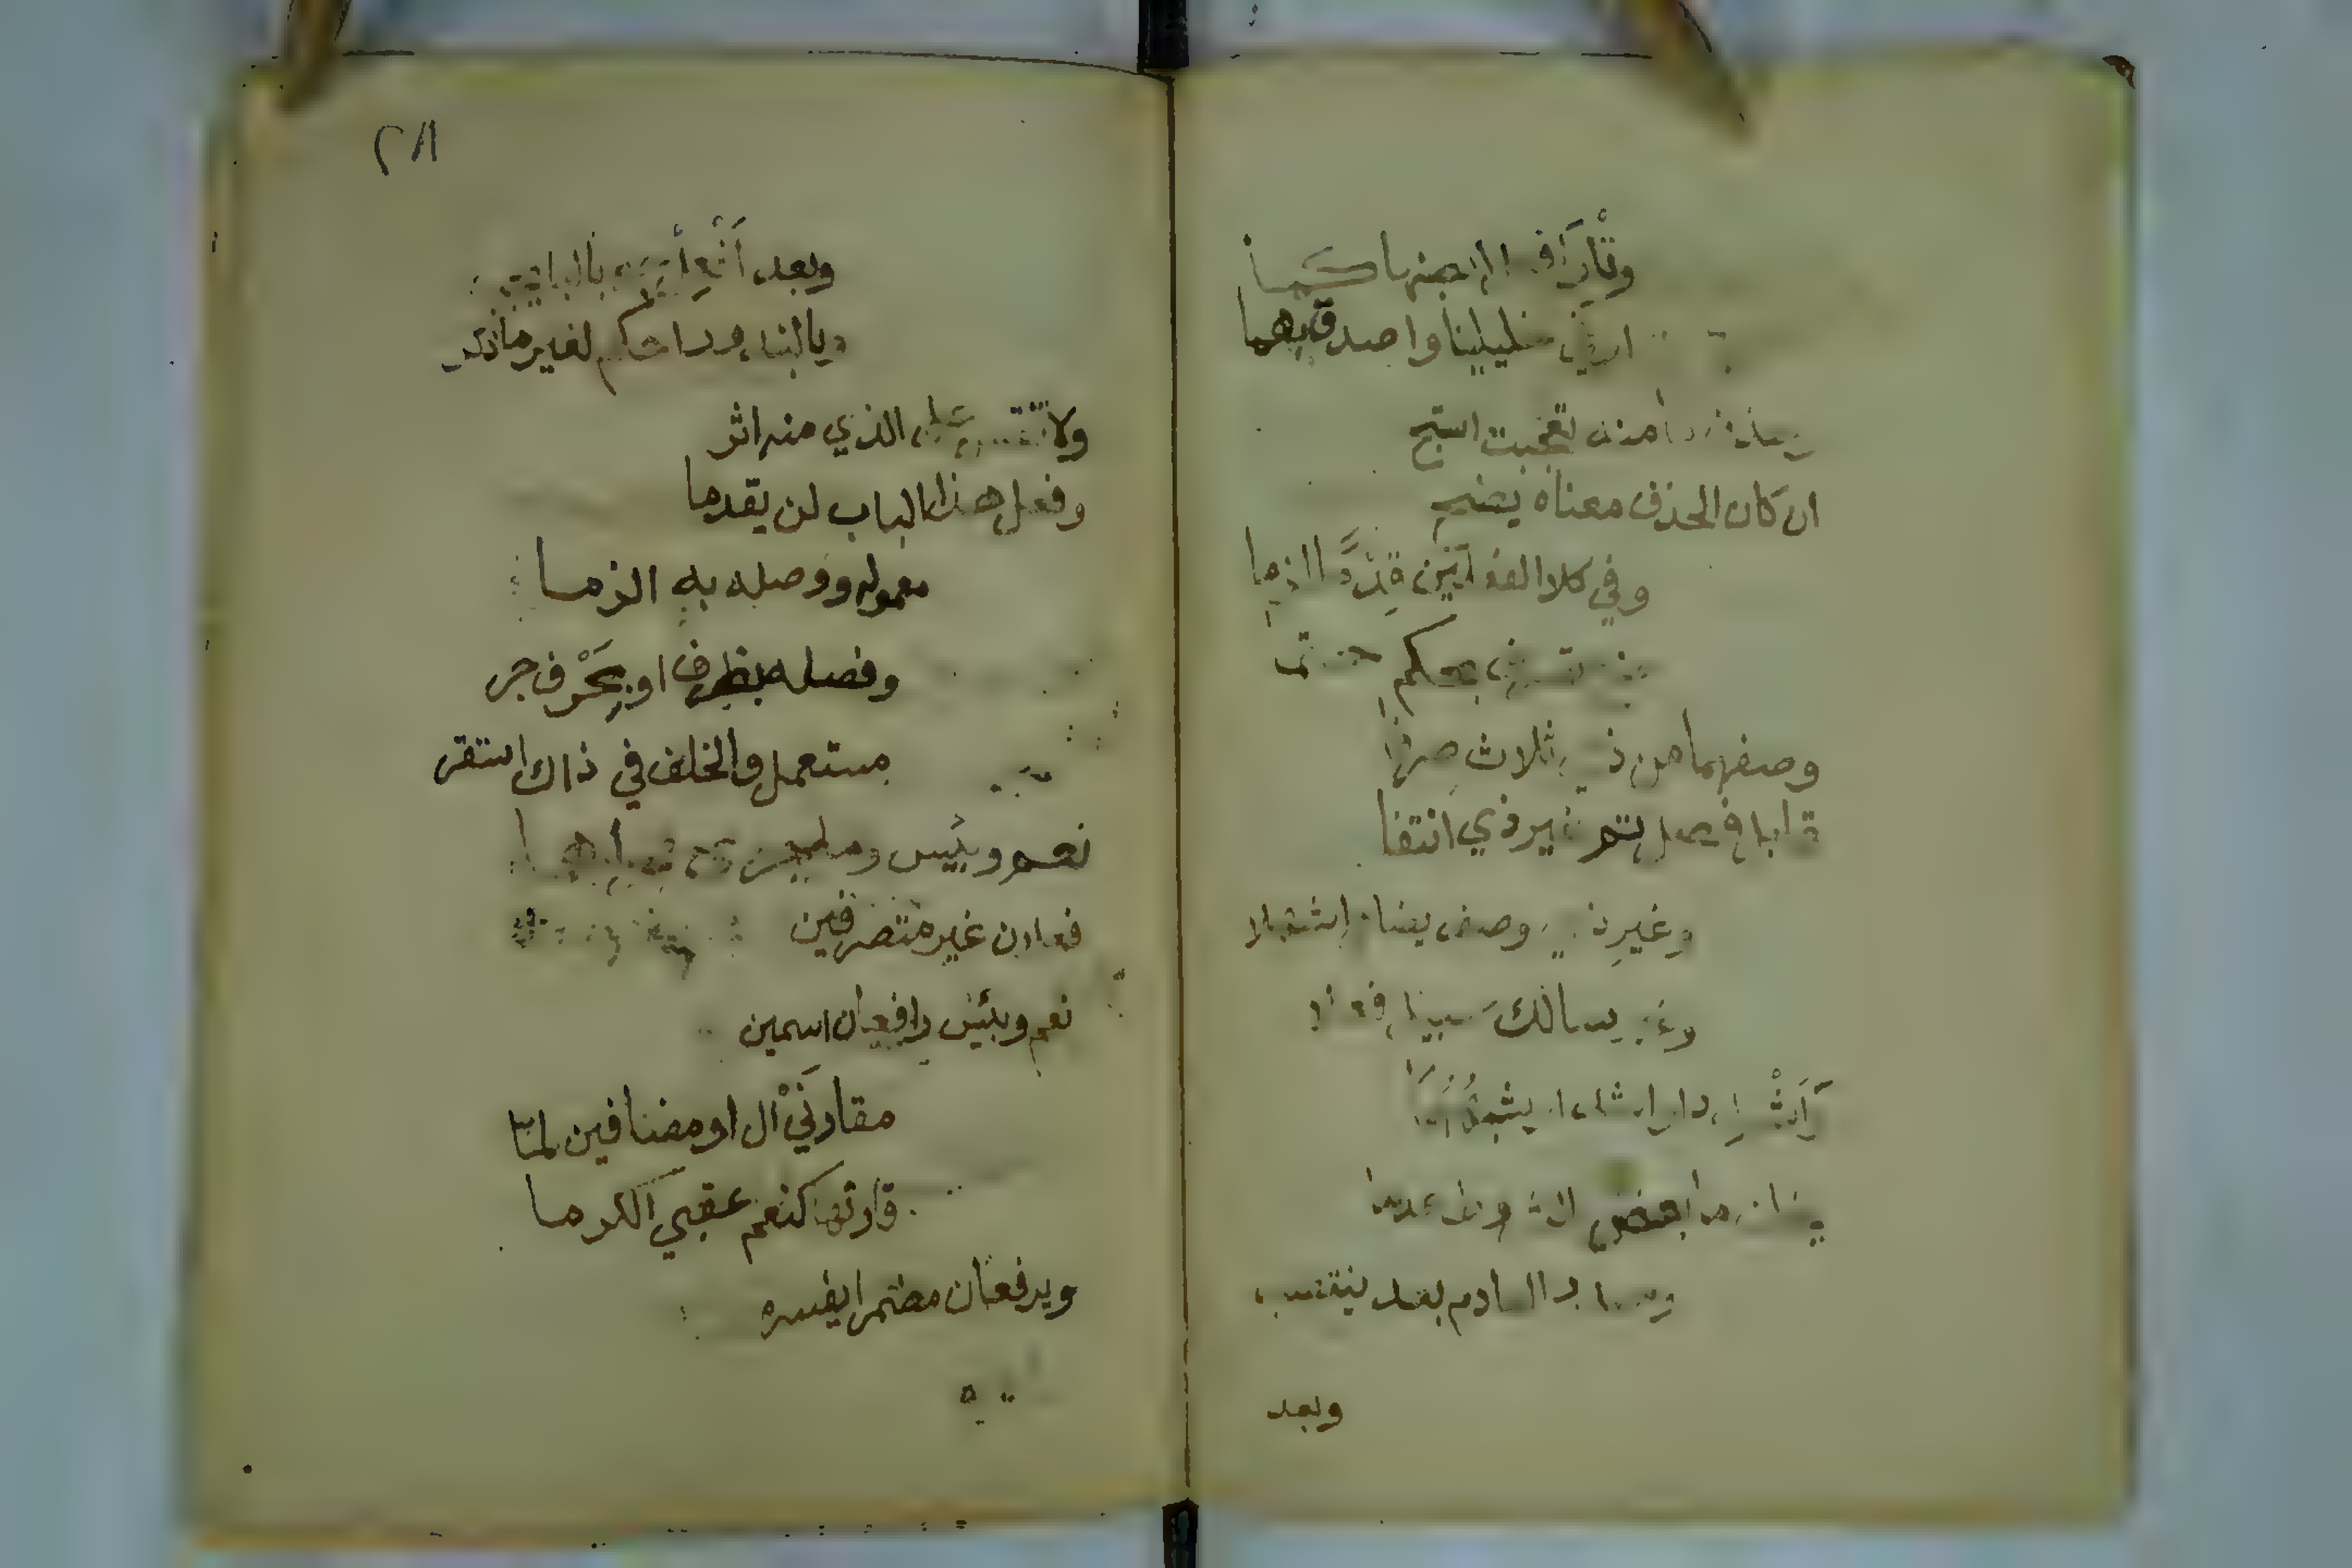 وتلو أفعل انصبنه كما
أوفى خليلينا واصدق بهما
وحذف ما منه تعجبت استبح
ان كان الحذف معناه يضح
وفي كلا الفعلين قدما لزما
منع تصرف بحكم حتما
وصغهما من ذي ثلاث صرفا
قابل فضل تم غير ذي انتفا
وغير ذي وصف يضا اشهلا
وغير سالك سبيل فعلا
واشد او شبههما
يخلف ما بعض الشروط عدما
العادم بعد ينتصب
وبعد
٢٨
وبعد أفعل بالبا
وبالندور احكم لغير ما ذكر
ولا تقس على الذي منه اثر
وفعل هذا الباب لن يقدما
معموله ووصله به الزما
وفصله بظرف او بحرف جر
مستعمل والخلف في ذاك استقر
نعم وبئس وما جرى مجراهما
فعلان غير متصرفين
نعم وبئس رافعان اسمين
مقارني أل او مضافين لما
قارنها كنعم عقبى الكرما
ويرفعان مضمرا يفسره